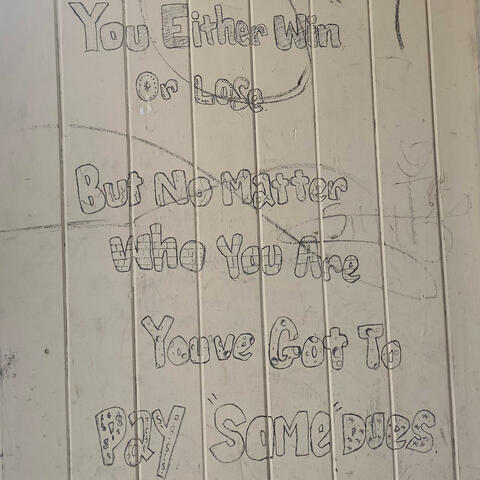 You Either Win
Or Lose
But No Matter
Who You Are
You've Got To
Pay "Same" Dues